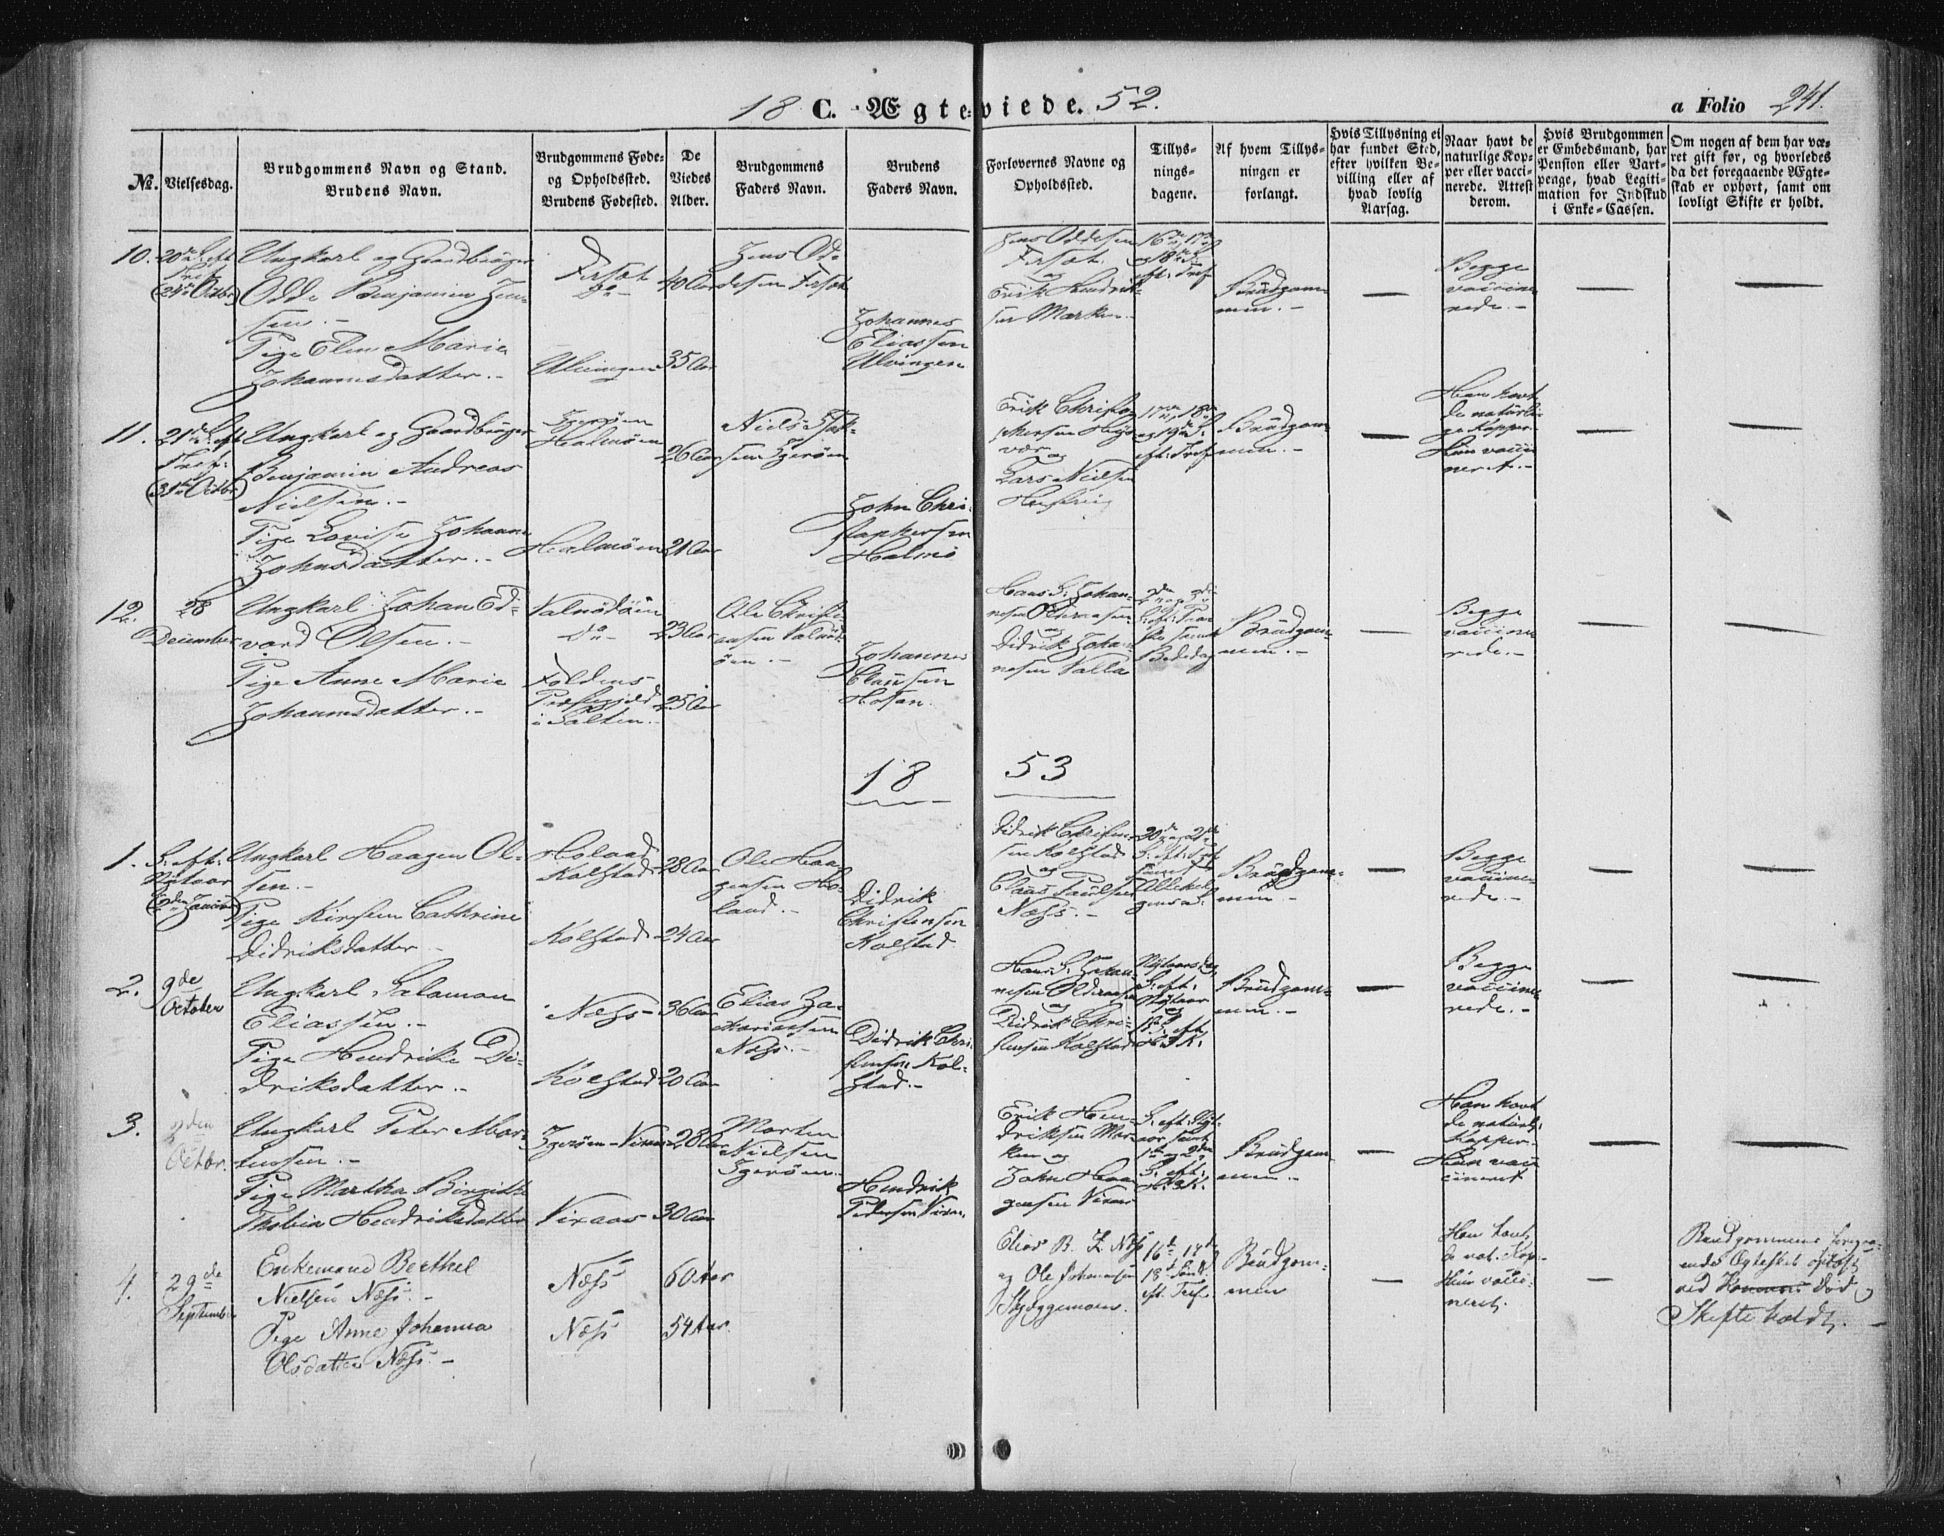 18 C. Ægteviede. 52.
a Folio 241.
No.
Vielsesdag.
Brudgommens Navn og Stand.
Brudens Navn.
Brudgommens Føde-
og Opholdssted.
Brudens Fødested.
De
Viedes
Alder.
Brudgommens
Faders Navn.
Brudens
Faders Navn.
Forlovernes Navne og
Opholdssted.
Tillys-
nings-
dagene.
Af hvem Tillys-
ningen er
forlangt.
Hvis Tillysning ei
har fundet Sted,
efter hvilken Be-
villing eller af
hvad lovlig
Aarsag.
Naar havt de
naturlige Kop-
per eller vacci-
nerede. Attest
derom.
Hvis Brudgommen
er Embedsmand, har
Pension eller Vart-
penge, hvad Legiti-
mation for Indskud
i Enke-Cassen.
Om nogen af dem har væ-
ret gift før, og hvorledes
da det foregaaende Ægte-
skab er ophørt, samt om
lovligt Skifte er holdt.
10.
Ungkarl og Gaardbruger
Odde Benjamin Jen-
sen.
Pige Elen Marie
Johannesdatter.
Forsæt
Do
Ulvingen
40 Aar
35 Aar
Jens Od-
desen Forsæt
Johannes
Eliassen
Ulvingen
Jens Oddesen
Forsæt
og
Erik Hendrik-
sen Marken
Brudgom-
men.
Begge
vaccine-
rede.
11.
Ungkarl og Gaardbruger
Benjamin Andreas
Nielsen.
Pige Lovise Johanna
Johnsdatter.
Igerøen
Halmøen
Halmøen
26 Aar
21 Aar
Niels
sen Igerøen
John Chri-
stophersen
Halmø
Erik Christo-
phersen
og
Lars Nielsen
Brudgom-
men.
Han havt
de naturli-
ge Kopper.
Hun vacci-
neret.
12.
28
December
Ungkarl Johan Ed-
vard Olsen.
Pige Anne Marie
Johannesdatter.
Valmødøen
Do
Foldens
Præstegjeld
i Salten.
23 Aar
25 Aar
Ole Christi-
ansen Valmød-
øen.
Johannes
Clausen
Hosan.
Hans G. Johan-
nesen
og
Didrik Johan-
nesen Valla
Brudgom-
men.
Begge
vaccine-
rede.
18 53
1.
S. eft.
Nytaar
Ungkarl Haagen Ol-
sen.
Pige Kirsten Cathrine
Didriksdatter
Holand
Kolstad
Kolstad
28 Aar
24 Aar
Ole Haa-
gensen Ho-
land.
Didrik
Christensen
Kolstad
Didrik Christen-
sen Kolstad
og
Claus Paulsen
Næss.
Brudgom-
men
Begge
vaccine-
rede.
2.
9de
October
Ungkarl Salamon
Eliassen.
Pige Hendrikke Di-
driksdatter.
Næss
Kolstad
36 Aar
20 Aar
Elias Za-
kariassen
Næss.
Didrik Chri-
stensen Kol-
stad.
Hans G. Johan-
nesen
og
Didrik Chri-
stensen Kolstad
Nytaarsdag
S. eft.
Nytaar
Brudgom-
men.
Begge
vaccine-
rede.
3.
9den
Octbr.
Ungkarl Peter Mor-
tensen.
Pige Martha Birgitte
Thobia Hendriksdatter
Igerøen - Vixaas
Vixaas
28 Aar
30 Aar
Morten
Nielsen
Igerøen.
Hendrik
Pedersen
Erik Hen-
driksen Mar-
ken og
John Haa-
gensen
Brudgom-
men
Han havt
de naturl.
Kopper.
Hun vac-
cineret
4.
29de
September
Enkemand Berthel
Nielsen Næss.
Pige Anne Johanna
Olsdatter Næss.
Næss
Næss
60 Aar
54 Aar.
Elias B. Z. Næss
og Ole Johannesen
Skjeggemoen.
16de 17de
18de Sønd.
eft. Tref.
Brudgom-
men
Han havt
de nat. Kop.
Hun vacci-
neret.
Brudgommens foregaa-
ende Ægteskab opløst
ved Konens Død
Skifte holdt.